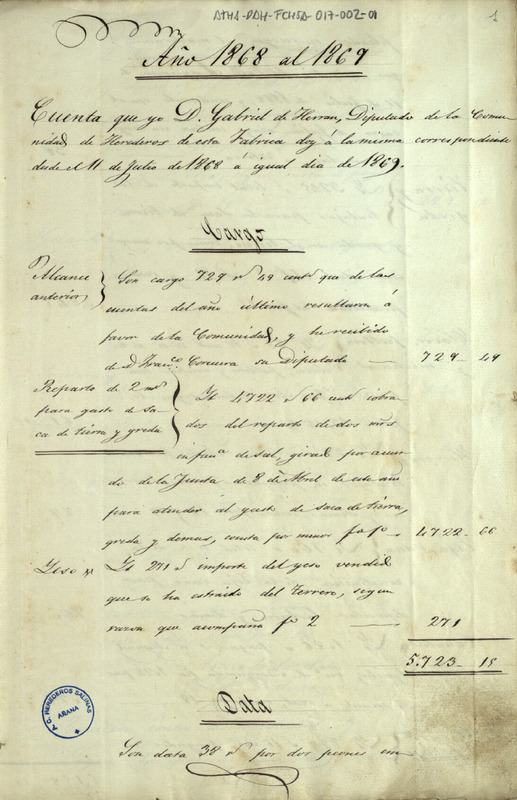 ATHA-DAH-FCHSA-017-002-01
1
Año 1868 al 1869
Cuenta que yo D. Gabriel de Herran, Diputado de la Comu-
nidad de Herederos de esta Fabrica doy á la misma correspondiente
desde el 11 de Julio de 1868 á igual dia de 1869.
Cargo
Alcance
anterior,
Son cargo 729 rs 49 cents que de las
cuentas del año último resultaron á
favor de la Comunidad, y he recibido
de D. Franco. Corcuera su Diputado — 729 - 49
Reparto de 2 mrs
para gasto de sa-
ca de tierra y greda
Id 4722 rs 66 cents cobra-
dos del reparto de dos mrs
en fana de sal, girado por acuer-
do de la Junta de 8 de Abril de este año
para atender al gasto de saca de tierra,
greda y demas, consta por menor fo 1o - 4,722 - 66
Yeso
Id 271 rs importe del yeso vendido
que se ha estraido del terrero, segun
razon que acompaña fo 2 — 271
5.723 - 15
A.C. HEREDEROS SALINAS
AÑANA
Data
Son data 38 rs por dos peones em-